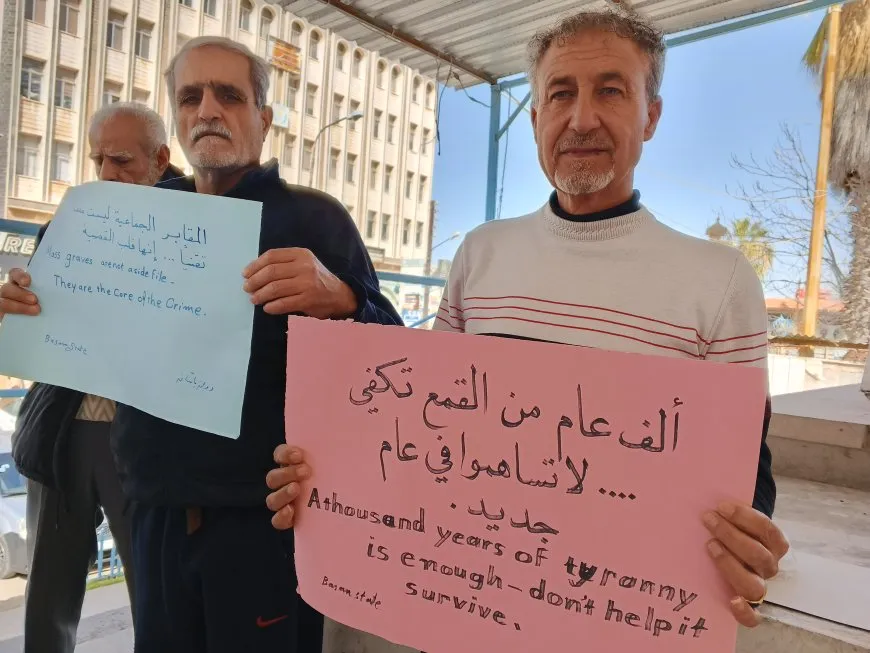 المقابر الجماعية ليست ملفًا
تقنيًا... إنها قلب القضية
Mass graves are not aside File.
They are the Core of the Crime.
Basan State
ألف عام من القمع تكفي
.... لا تساهموا في عام
جديد.
A thousand years of tyranny
is enough - don't help it
survive.
Basan. state